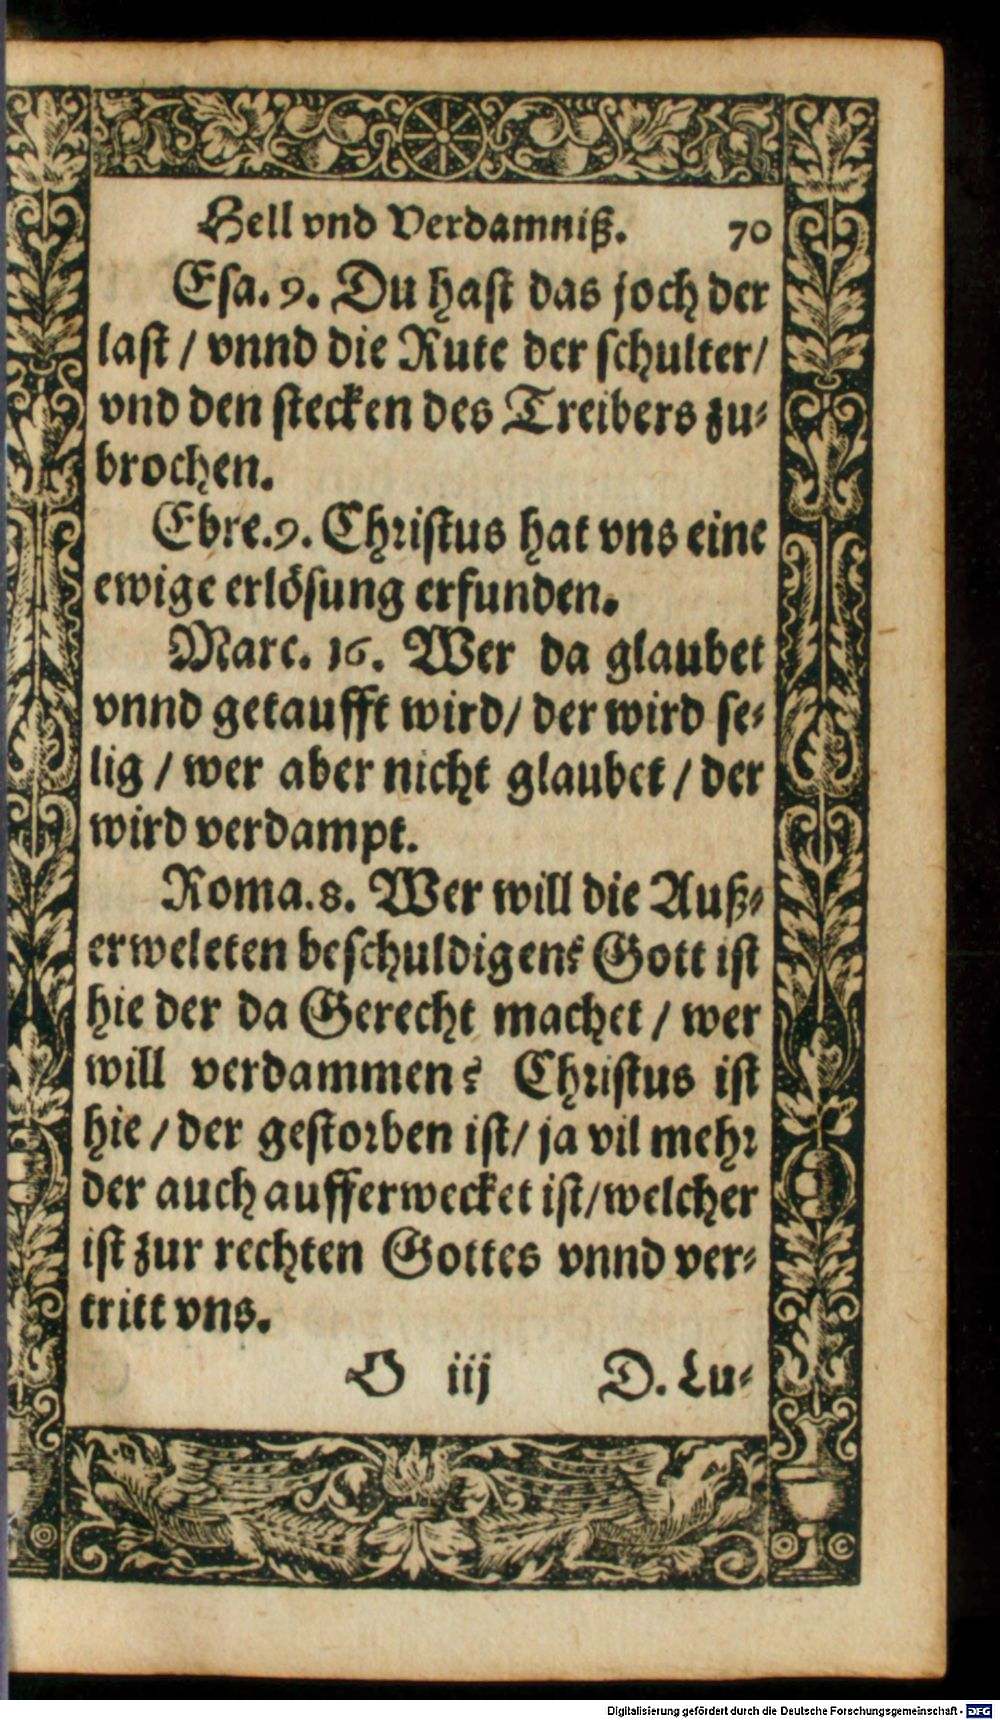 Hell vnd Verdamniß. 70
Esa. 9. Du hast das joch der
last / vnnd die Rute der schulter/
vnd den stecken des Treibers zu⸗
brochen.
Ebre. 9. Christus hat vns eine
ewige erlösung erfunden.
Marc. 16. Wer da glaubet
vnnd getaufft wird/ der wird se⸗
lig / wer aber nicht glaubet / der
wird verdampt.
Roma. 8. Wer will die Auß⸗
erweleten beschuldigen? Gott ist
hie der da Gerecht machet / wer
will verdammen? Christus ist
hie / der gestorben ist/ ja vil mehr
der auch aufferwecket ist/welcher
ist zur rechten Gottes vnnd ver⸗
tritt vns.
O iij D. Lu⸗
Digitalisierung gefördert durch die Deutsche Forschungsgemeinschaft - DFG